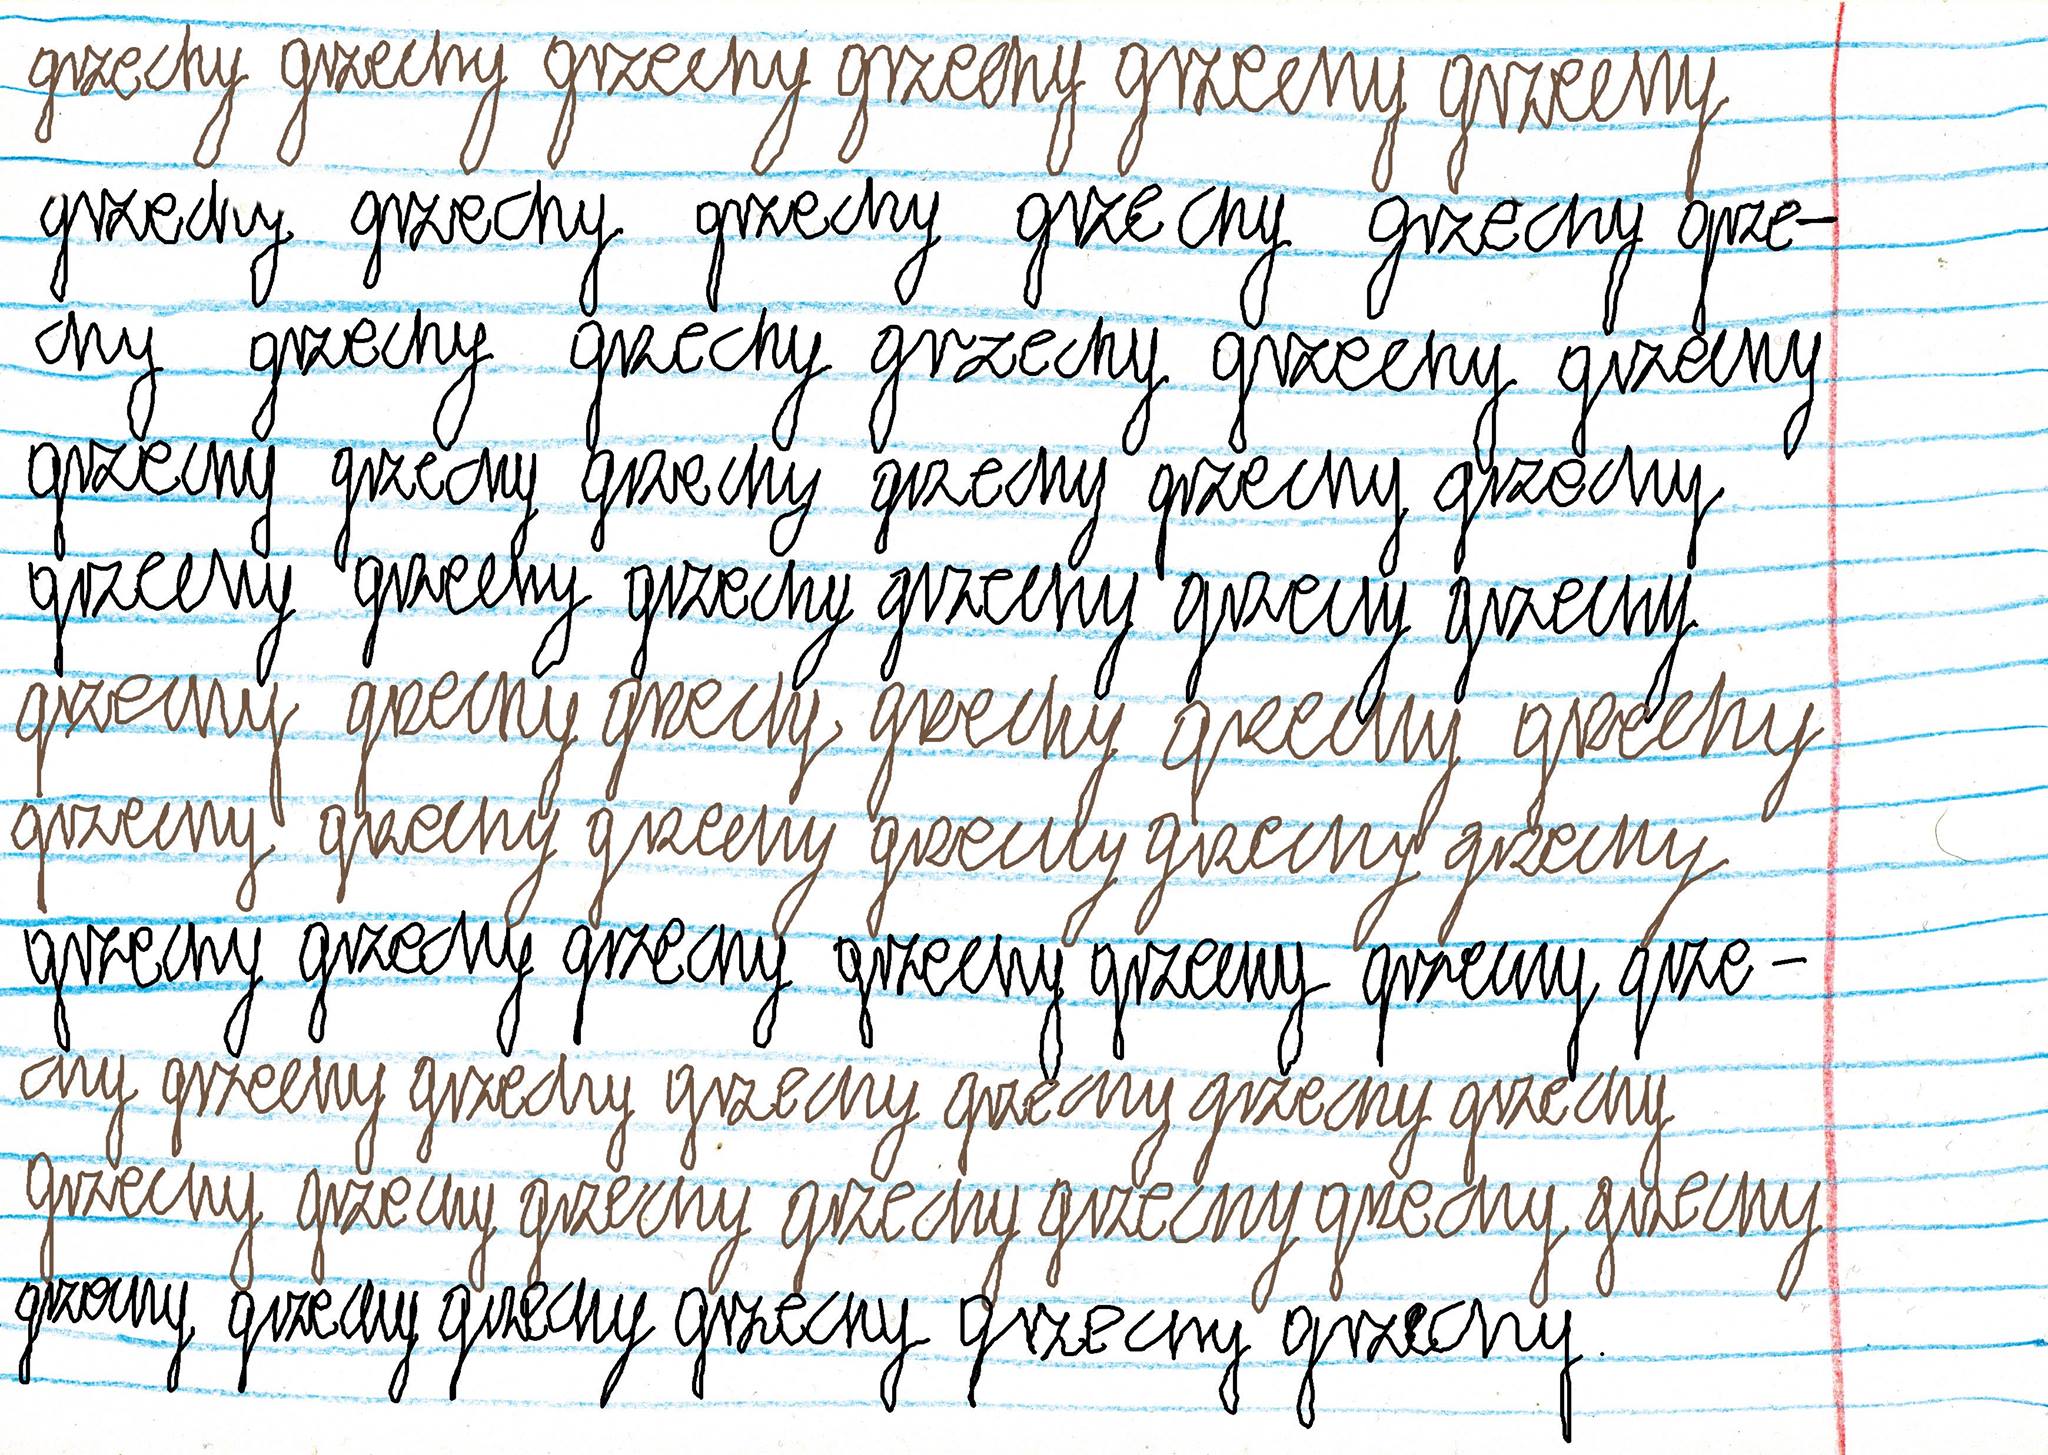 grzechy grzechy grzechy grzechy grzechy grzechy
grzechy grzechy grzechy grzechy grzechy grze-
chy grzechy grzechy grzechy grzechy grzechy
grzechy grzechy grzechy grzechy grzechy grzechy
grzechy grzechy grzechy grzechy grzechy grzechy
grzechy grzechy grzechy grzechy grzechy grzechy
grzechy grzechy grzechy grzechy grzechy grzechy
grzechy grzechy grzechy grzechy grzechy grzechy grze-
chy grzechy grzechy grzechy grzechy grzechy grzechy
grzechy grzechy grzechy grzechy grzechy grzechy grzechy
grzechy grzechy grzechy grzechy grzechy grzechy.